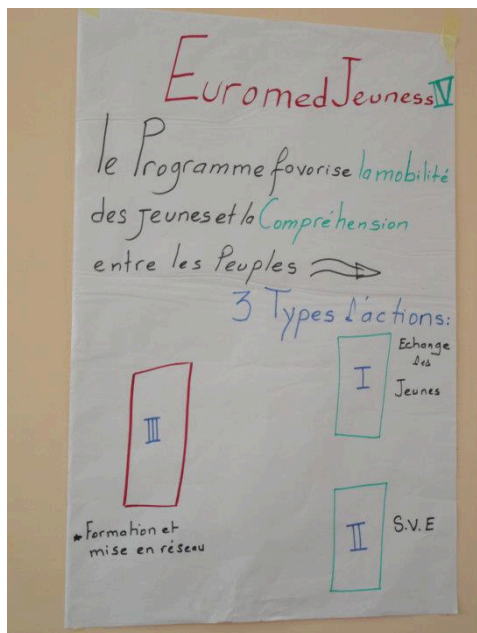 Euromed Jeuness IV
le Programme favorise la mobilité
des jeunes et la Compréhension
entre les Peuples
3 Types d'actions:
I
Echange
des
Jeunes
II
S.V.E
III
* Formation et
mise en réseau